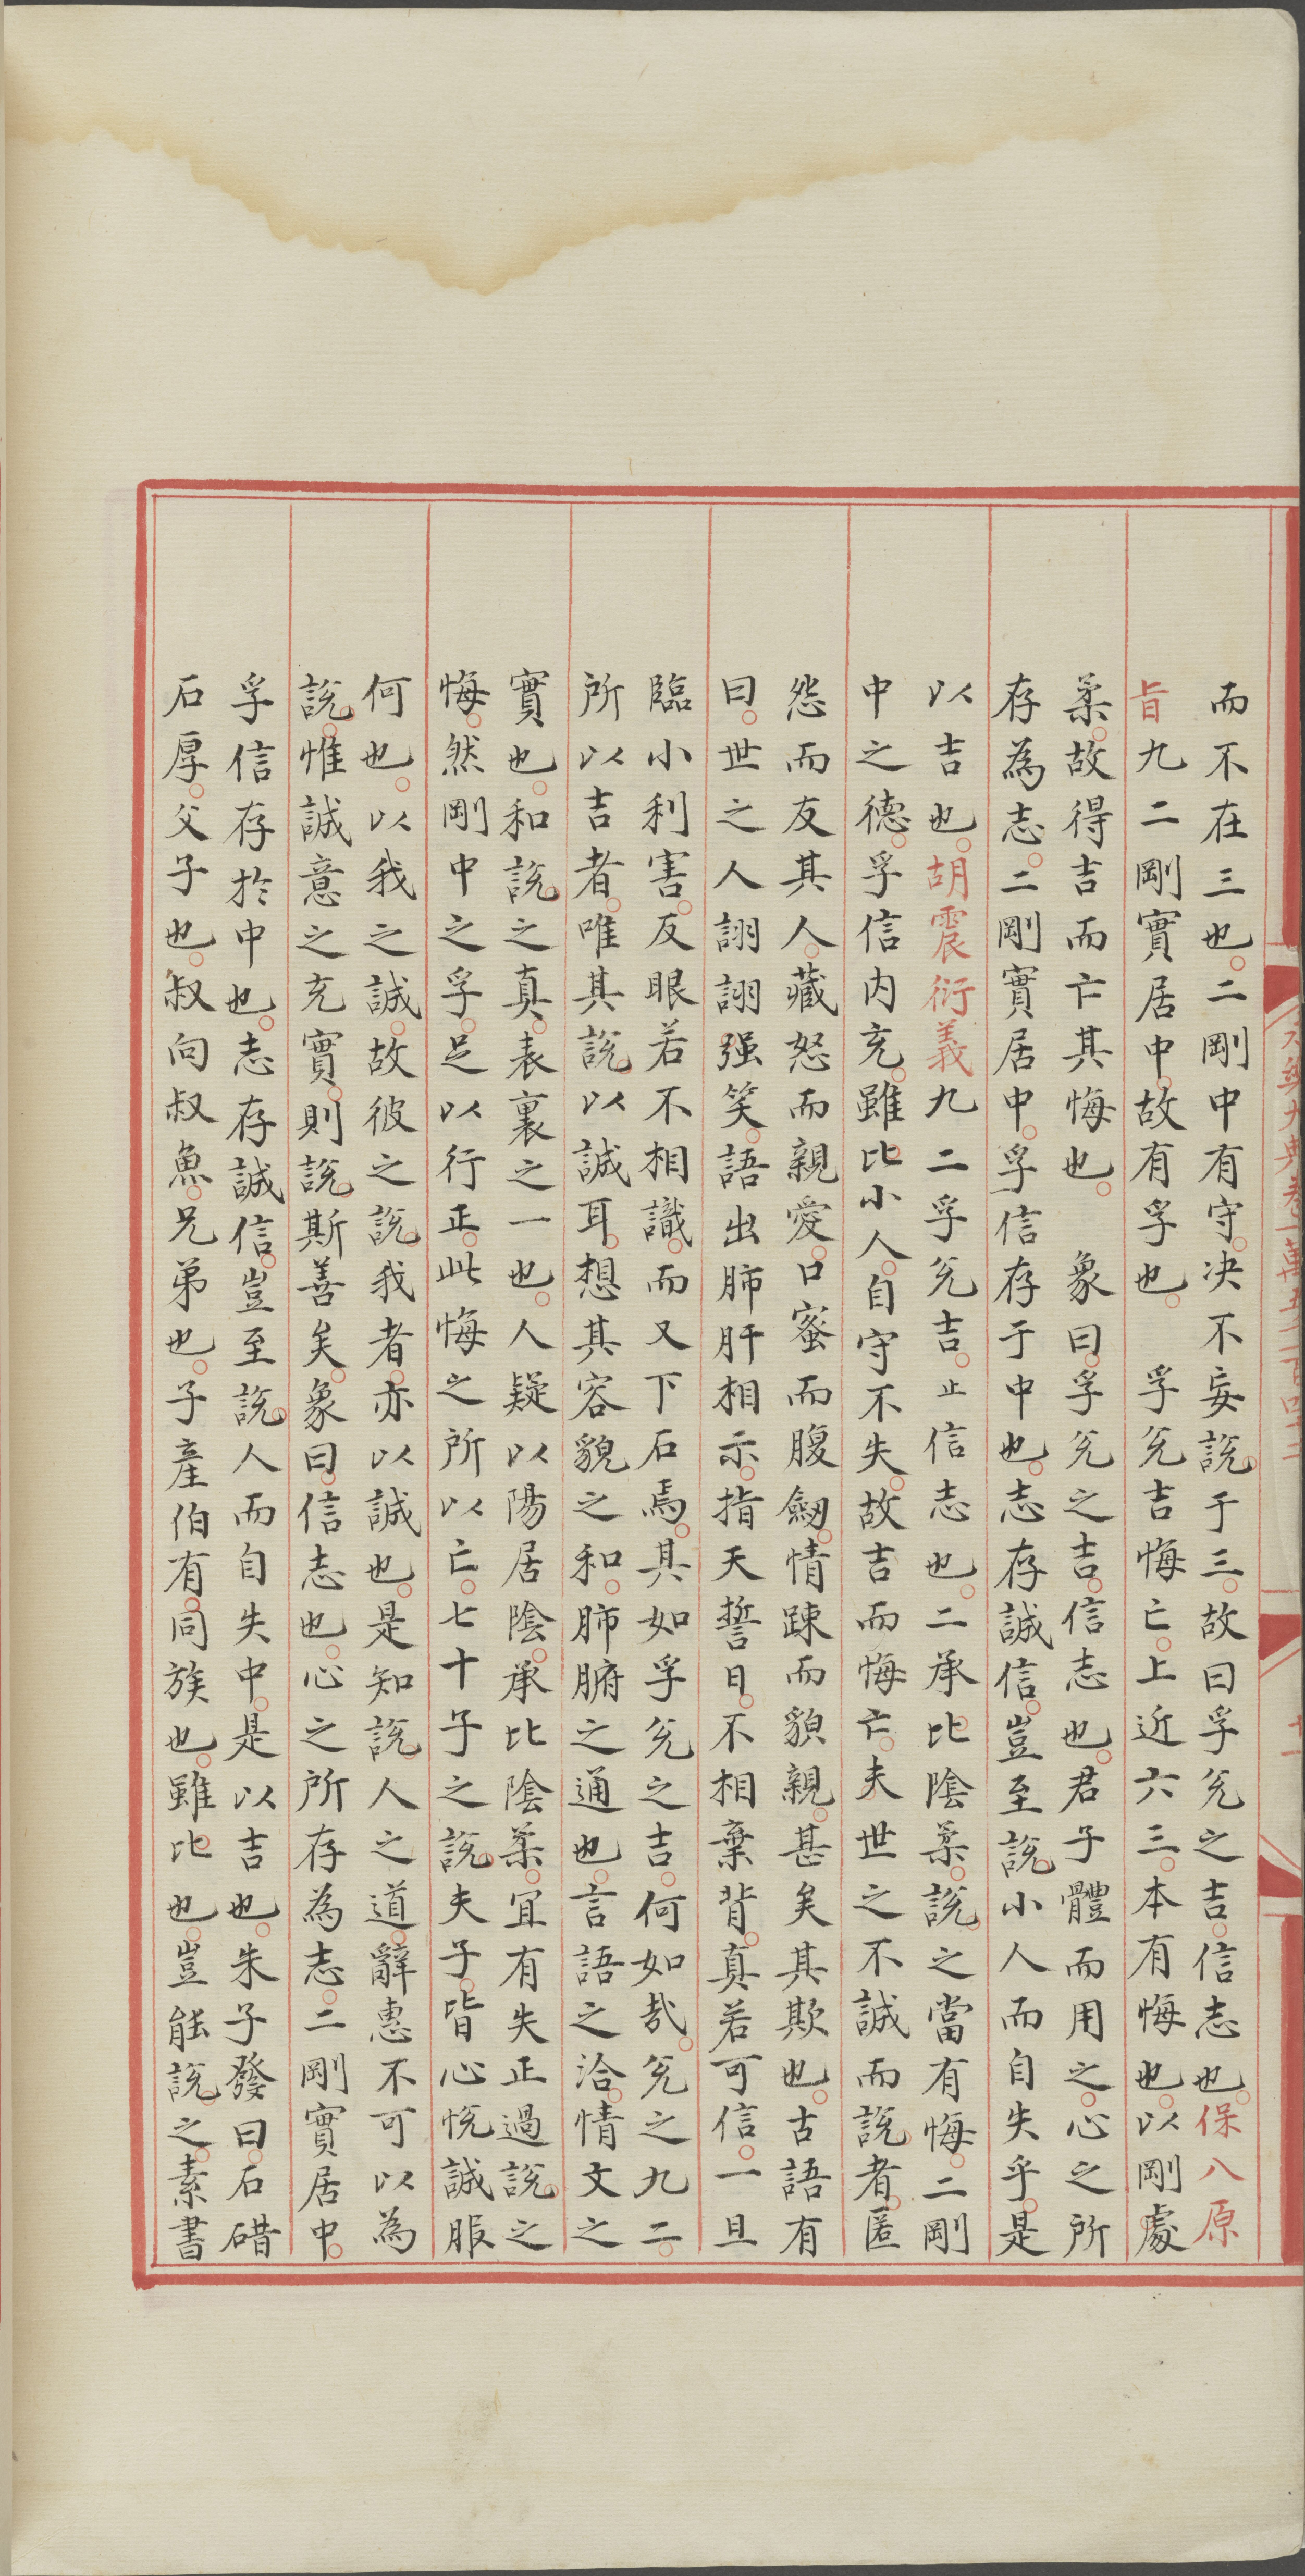 而不在三也。二剛中有守。决不妄説于三。故曰孚兊之吉。信志也。保八原
旨九二剛實居中。故有孚也。 孚兊吉悔亡。上近六三。本有悔也。以剛處
柔。故得吉而亡其悔也。 象曰。孚兊之吉。信志也。君子體而用之。心之所
存為志。二剛實居中。孚信存于中也。志存誠信。豈至説小人而自失乎。是
以吉也。胡震衍義九二孚兊吉。止信志也。二承比陰柔。説之當有悔。二剛
中之德。孚信内充。雖比小人。自守不失。故吉而悔亡。夫世之不誠而説者。匿
怨而友其人。藏怒而親愛。口蜜而腹劒。情踈而貌親。甚矣其欺也。古語有
曰。世之人詡詡强笑。語出肺肝相示。指天誓日。不相棄背。真若可信。一旦
臨小利害。反眼若不相識。而又下石焉。其如孚兊之吉。何如㢤。兊之九二。
所以吉者。唯其説以誠耳。想其容貌之和。肺腑之通也。言語之洽。情文之
實也。和説之真。表裏之一也。人疑以陽居陰。承比陰柔。宜有失正過説之
悔。然剛中之孚。足以行正。此悔之所以亡。七十子之説夫子。皆心悅誠服
何也。以我之誠。故彼之説我者。亦以誠也。是知説人之道。辭惠不可以為
説。惟誠意之充實。則説斯善矣。象曰。信志也。心之所存為志。二剛實居中。
孚信存於中也。志存誠信。豈至説人而自失中。是以吉也。朱子發曰。石碏
石厚。父子也。叔向叔魚。兄弟也。子產伯有。同族也。雖比也。豈能説之。素書